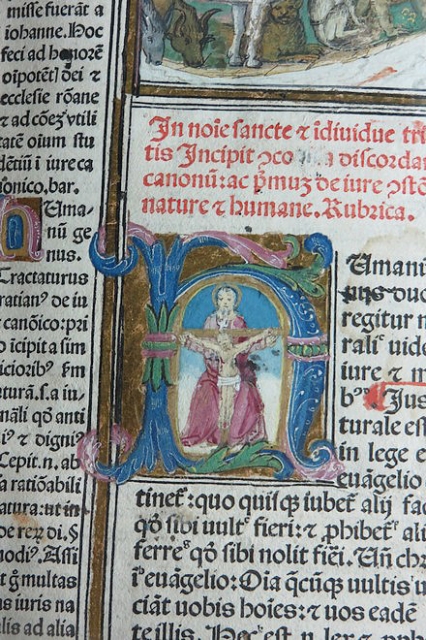 misse fuerāt a
iohanne. Hoc
feci ad honorē
oīpotētꝭ dei ⁊
ecclesie rōane
⁊ ad cōez vtili
tatē oium stu
dētiū ī iure ca
nonico, bar.
Uma-
nū ge
nus.
Tractaturus
ratianꝰ de iu
canōico: pri
o īcipit a sim
icioribꝰ
turā. s. a iu-
nāli qō anti
iꝰ ⁊ digniꝰ
Cepit. n. ab
a ratiōabili
atura: ut in
de reꝝ di. §
modiꝰ. Assi
ut ḡ multas
as iuris na
alis ad alia
In noīe sancte ⁊ īdiuidue tri
tis Incipit ꝯco discordan
canonū: ac p̄muȝ de iure ꝯstō
nature ⁊ humane. Rubrica.
Umanū
duo
regitur n
rali uide
iure ⁊ m
bꝰ Jus
turale est
in lege e
euāgelio
tinet᷑: quo quisqꝫ iubet᷑ alij fac
qō sibi uult᷑ fieri: ⁊ ꝓhibet᷑ ali
ferre qō sibi nolit fieri. Uñ chr
ī euāgelio: Oīa q̄cūqꝫ uultis u
ciāt uobis hoīes: ⁊ uos eadē
te illis. Hec est. n. lex ⁊ ꝓh